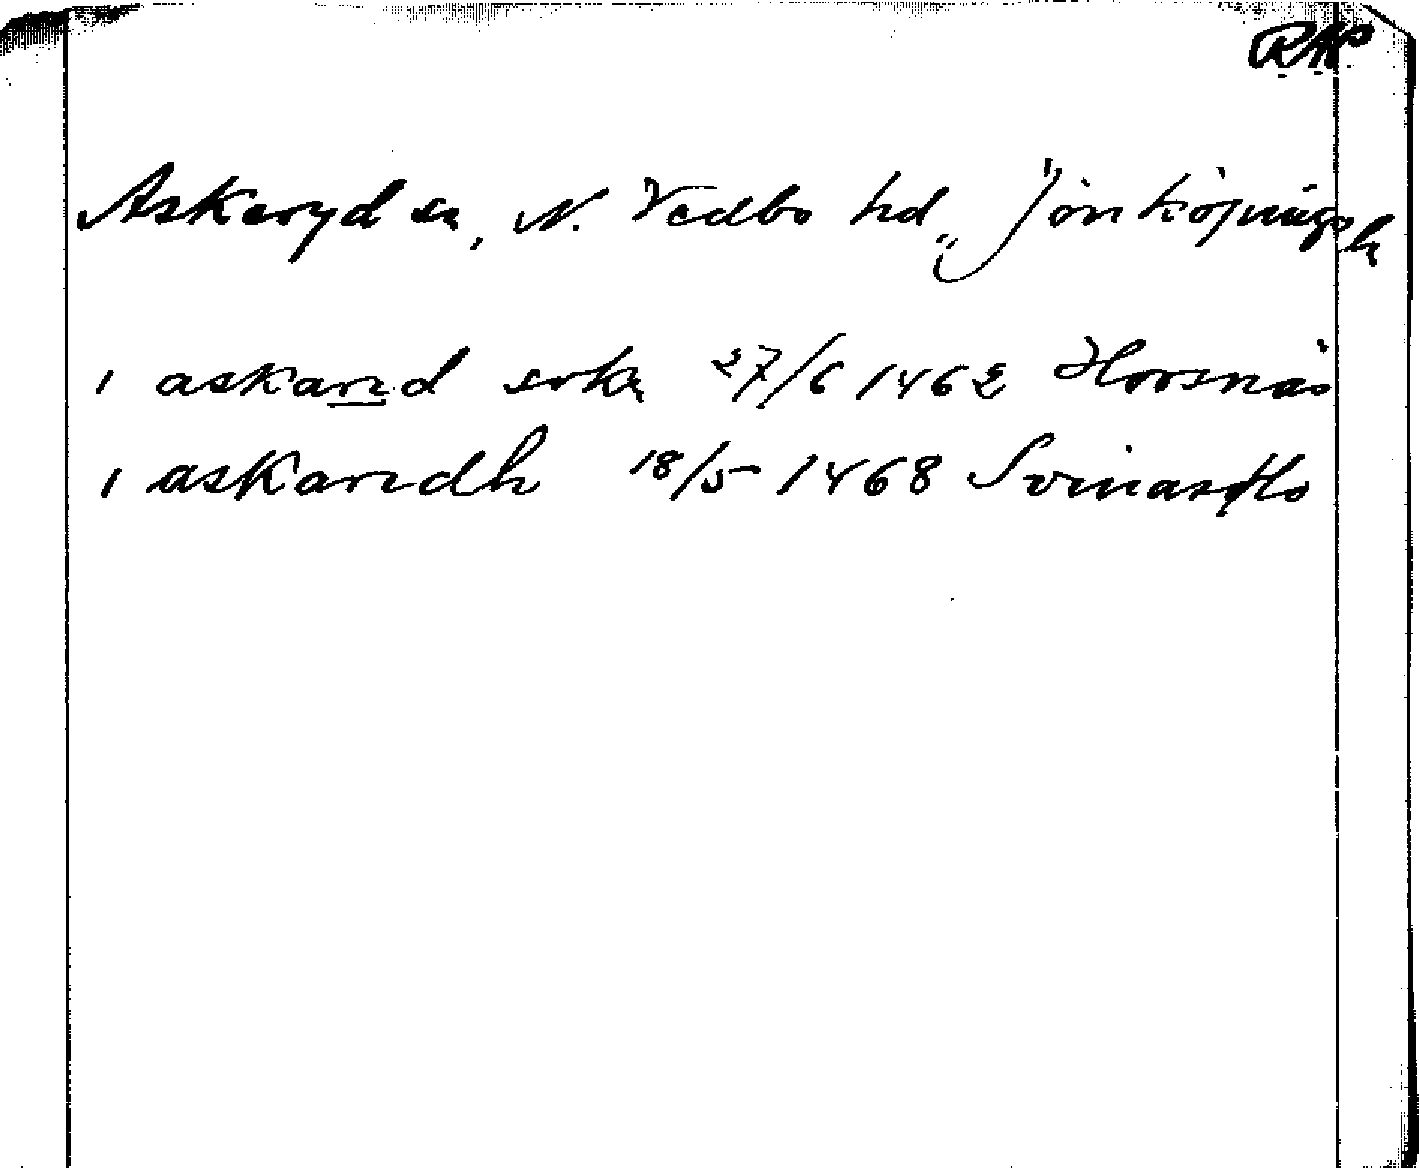 RAP
Askeryd sn, N. Vedbo hd, Jönköpings
ı askand sokn 27/6 1462 Horsnäs
ı askandh 18/5 1468